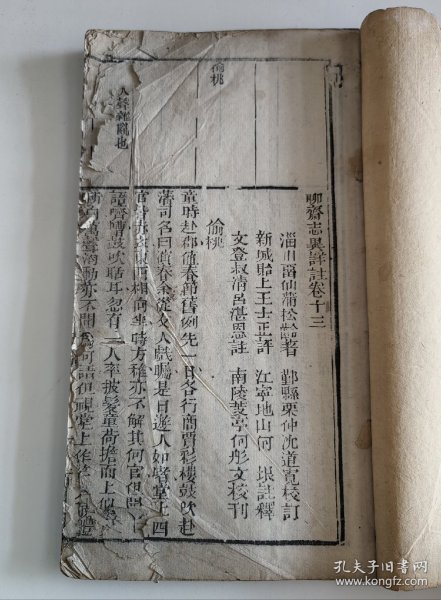 聊齋志異詳註卷十三
淄川 留仙 蒲松齡 著 鄞縣 栗仲 沈道寬 校訂
新城 貽上 王士正 評 江寧 地山 何 垠 註釋
文登 叔清 呂湛恩 註 南陵 菱亭 何彤文 校刊
偷桃
童時赴郡值春節舊例先一日各行商賈彩樓鼓吹赴
藩司名曰演春余從友人戲矚是日遊人如堵堂上四
官皆赤衣東西相向坐時方稚亦不解其何官但聞人
語嚌嘈鼓吹聒耳忽有一人率披髮童荷擔而上似有
所白萬聲洶動亦不聞為何語但視堂上作笑
偷桃
人聲雜亂也
孔夫子旧书网
www.kongfz.com